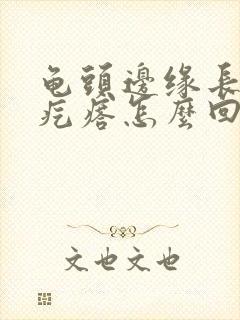 龟頭邊缘長
疙瘩怎麼回
文也文也